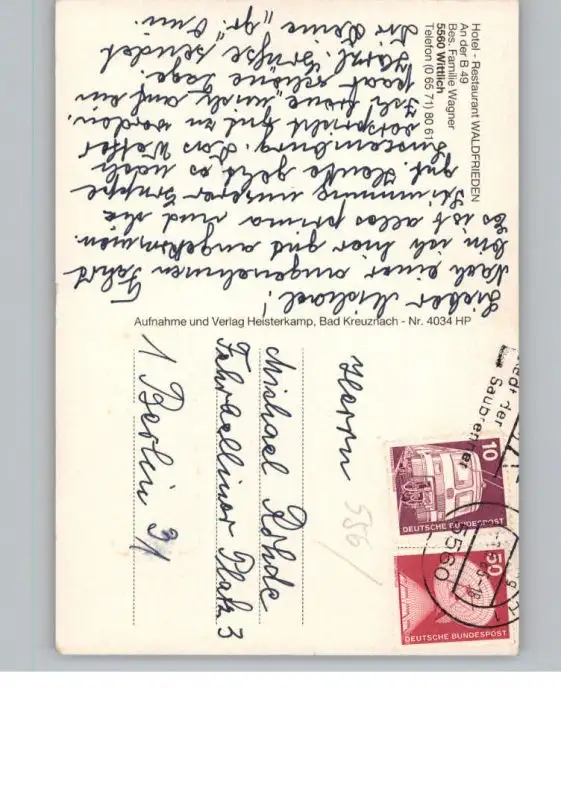 Hotel - Restaurant WALDFRIEDEN
An der B 49
Bes. Familie Wagner
5560 Wittlich
Telefon (0 65 71) 80 61
Lieber Michael!
Nach einer angenehmen Fahrt
bin ich hier gut angekommen.
Es ist alles prima und die
Stimmung unserer Gruppe
gut. Heute geht es nach
Luxemburg. Das Wetter
verspricht gut zu werden.
Ich freue mich auf ein
paar schöne Tage.
Herzl. Grüße sendet
Dir Deine "gr." Omi.
Aufnahme und Verlag Heisterkamp, Bad Kreuznach - Nr. 4034 HP
Herrn
Michael Rohde
Fehrbelliner Platz 3
1 Berlin 31
556/
10
DEUTSCHE BUNDESPOST
50
DEUTSCHE BUNDESPOST
5560
Stadt der
Saubrenner